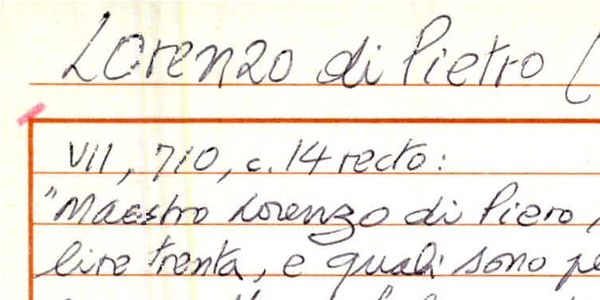 Lorenzo di Pietro (
VII, 710, c. 14 recto:
"Maestro Lorenzo di Piero,
lire trenta, e quali sono pe